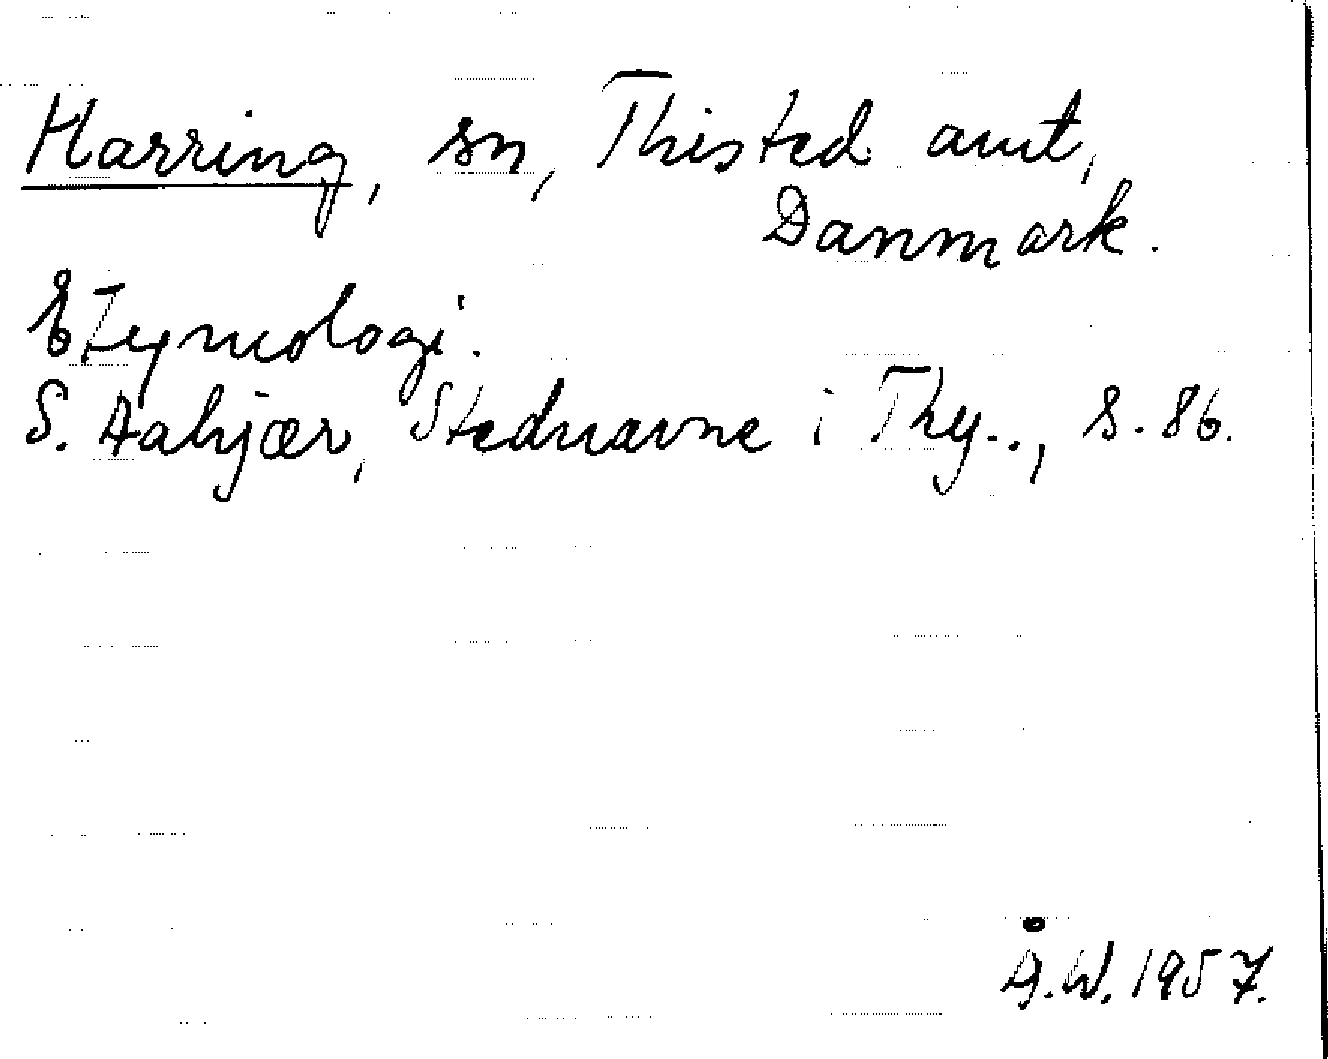 Harring, sn, Thisted amt,
Danmark.
Etymologi.
S. Aakjær, Stednavne i Thy.., S. 86.
Å.W. 1957.